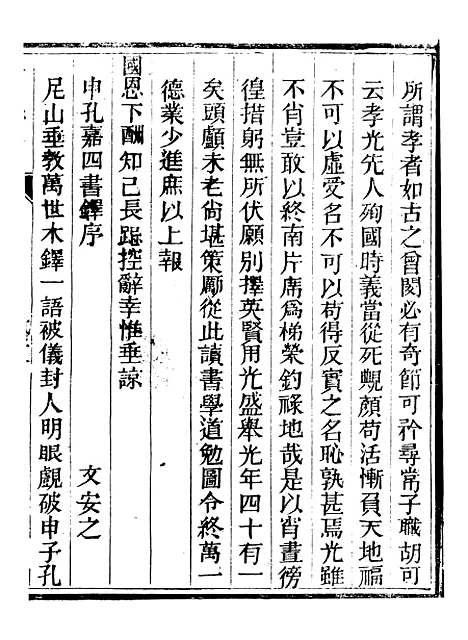 所謂孝者如古之曾閔必有奇節可矜尋常子職胡可
云孝光先人殉國時義當從死覥顏苟活慚負天地福
不可以虛受名不可以苟得反實之名恥孰甚焉光雖
不肖豈敢以終南片席為梯榮釣祿地哉是以宵晝徬
徨措躬無所伏願別擇英賢用光盛舉光年四十有一
矣頭顱未老尚堪策勵從此讀書學道勉圖令終萬一
德業少進庶以上報
國恩下酬知己長跽控辭幸惟垂諒
申孔嘉四書鐸序　　　文安之
尼山垂教萬世木鐸一語被儀封人明眼覷破申子孔